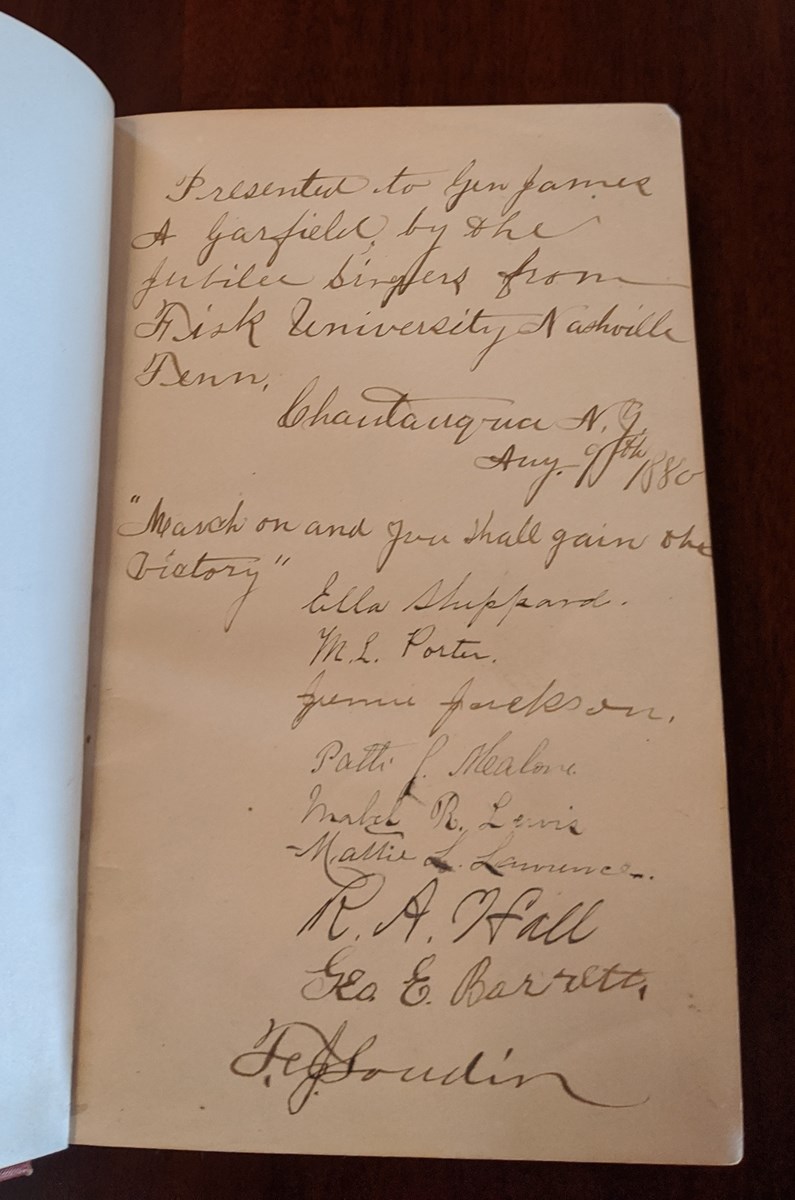 Presented to Gen James
A Garfield, by the
Jubilee Singers from
Fisk University Nashville
Tenn.
Chautauqua N.Y.
Aug. 9th 1880
"March on and you shall gain the
Victory"
Ella Sheppard.
M.L. Porter.
Jennie Jackson.
Patti J. Malone
Mabel R. Lewis
Mattie L. Lawrence.
R. A. Hall
Geo E. Barrett.
F. J. Loudin